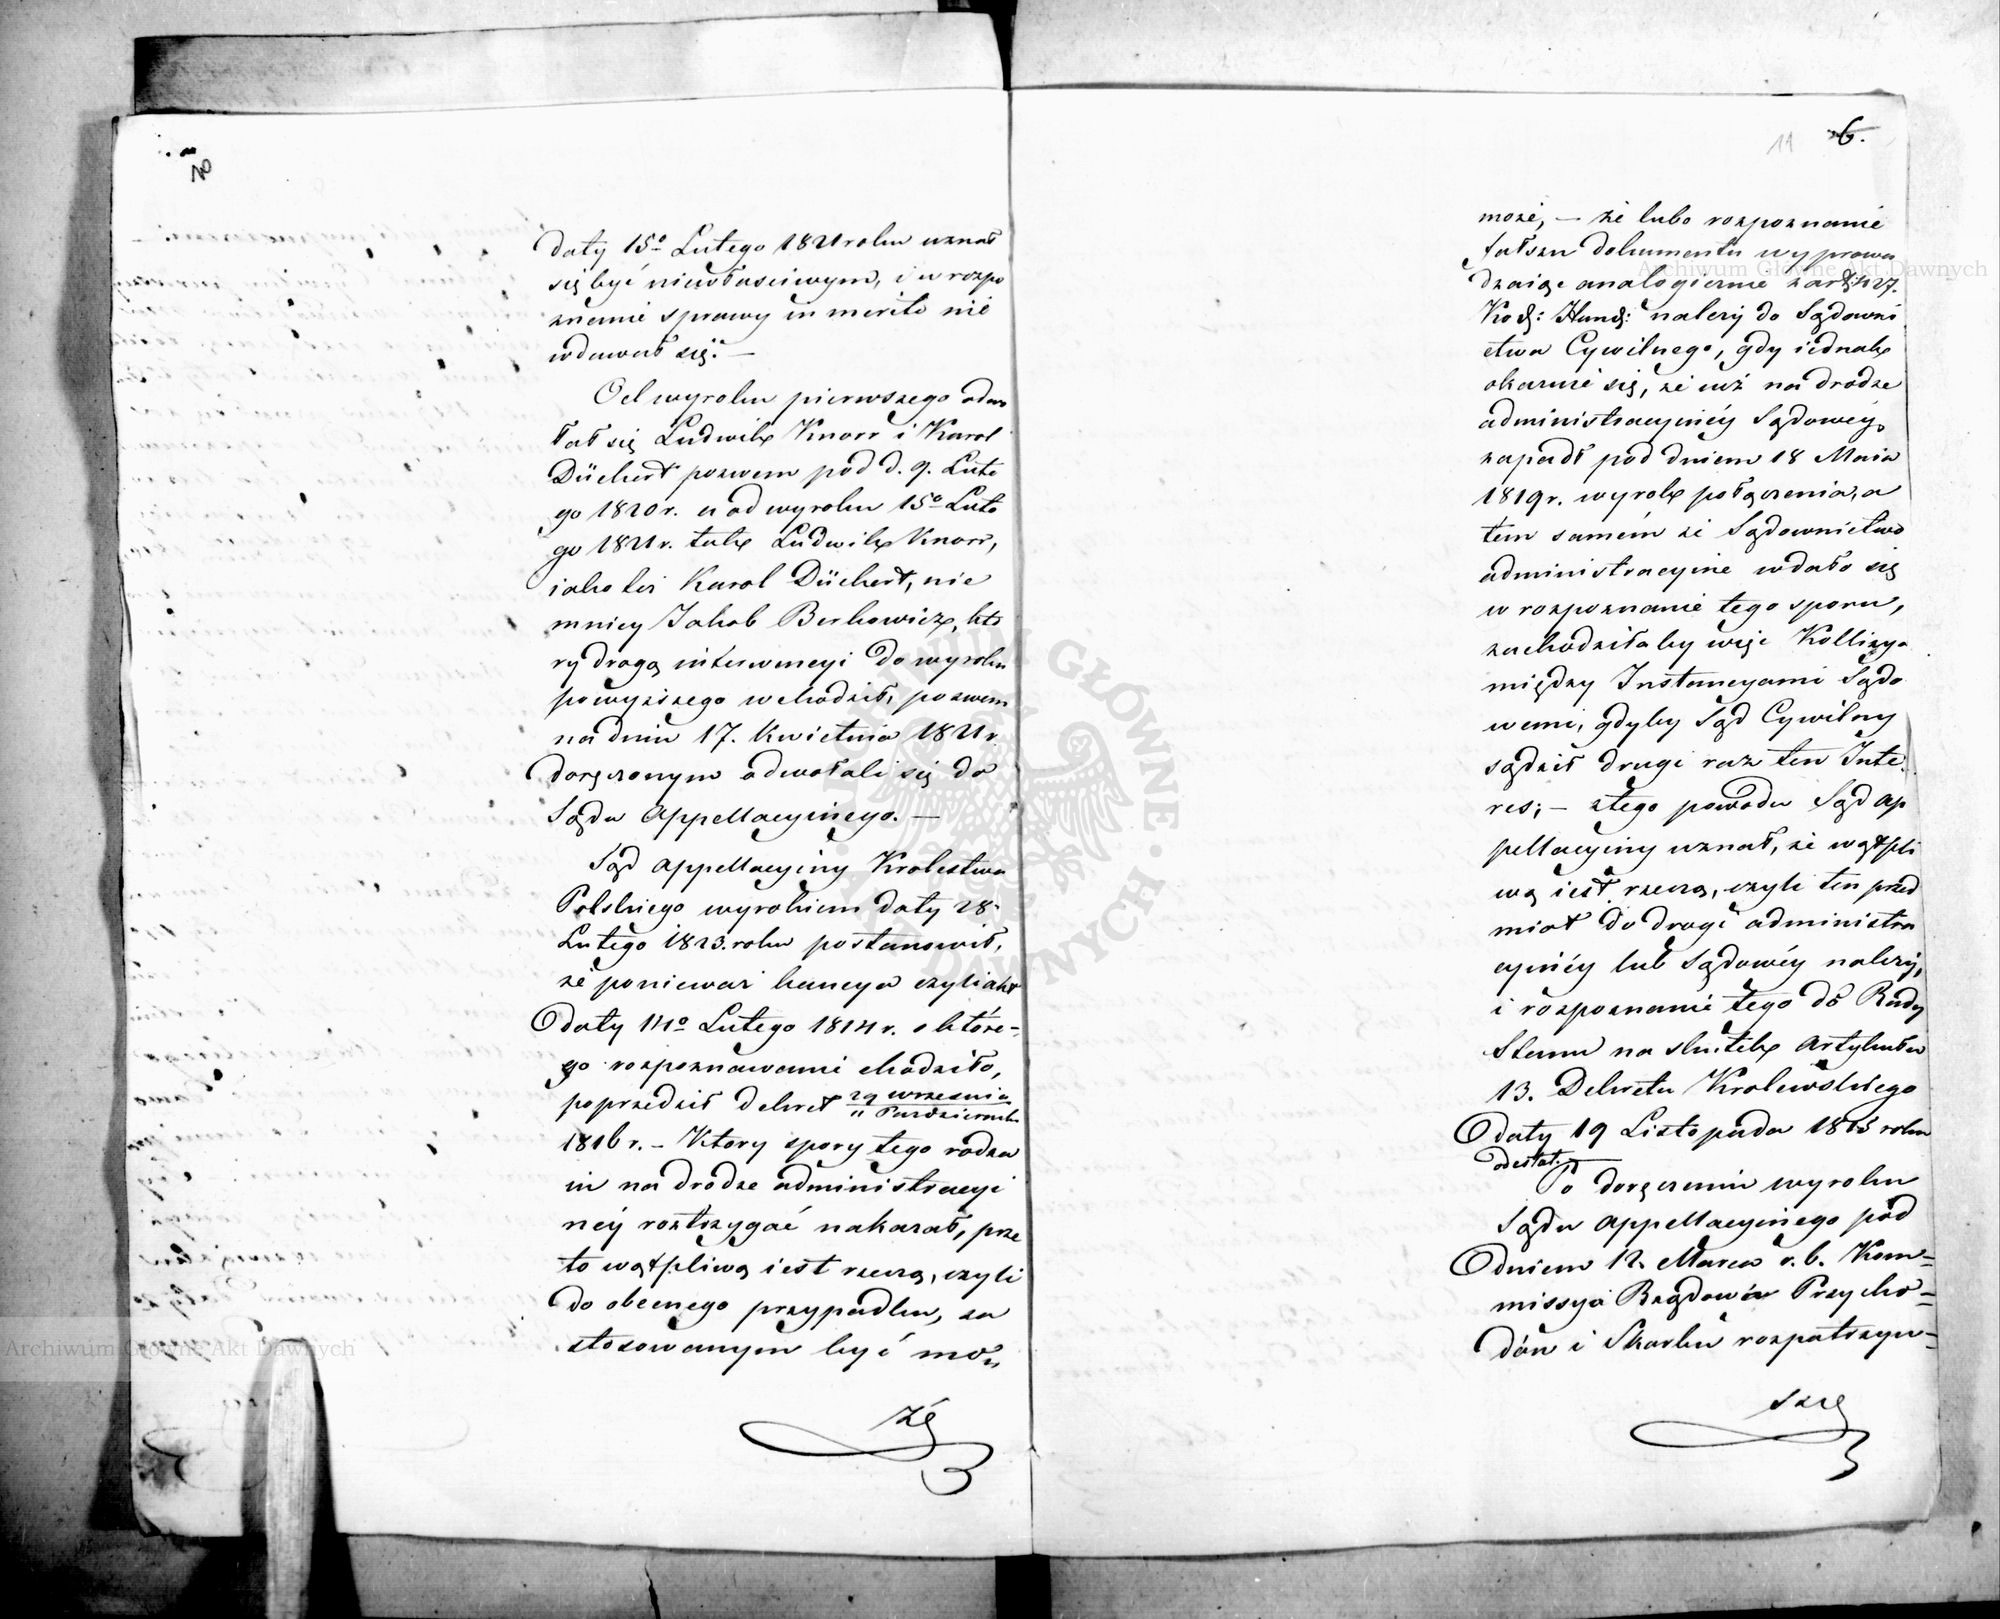 10
daty 15º Lutego 1821 roku uznał
się być niewłaściwym, i w rozpo
znanie sprawy in merito nie
wdawał się. —
Od wyroku pierwszego odwo
łał się Ludwik Knorr i Karol
Düchert pozwem pod d. 9. Lute
go 1820 r. a od wyroku 15º Lute
go 1821 r. tak Ludwik Knorr,
iako też Karol Düchert, nie
mniey Jakob Berkowicz, któ
ry drogą interwencyi do wyroku
powyższego wchodził, pozwem
na dniu 17. Kwietnia 1821 r.
doręczonym odwołali się do
Sądu Appellacyinego. —
Sąd Appellacyiny Krolestwa
Polskiego wyrokiem daty 28.
Lutego 1823. roku postanowił,
że ponieważ kaucya czyli akt
daty 14º Lutego 1814 r. o które-
go rozpoznawanie chodziło,
poprzedził dekret 29 września
11 Pazdziernika
1816 r. — Ktory spory tego rodza
iu na drodze administracyi
néy roztrzygać nakazał, prze
to wątpliwą iest rzeczą, czyli
do obecnego przypadku, za
stosowanym być mo„
że
11 6.
może, — że lubo rozpoznanie
fałszu dokumentu wyprowa
dzaiąc analogicznie z art: 427.
Kod: Hand: należy do Sądowni
ctwa Cywilnego, gdy iednak
okazuie się, że iuż na drodze
administracyinéy Sądowéy
zapadł pod dniem 18 Maia
1819 r. wyrok połączenia, a
tem samém że Sądownictwo
administracyine wdało się
w rozpoznanie tego sporu,
zachodziłaby więc Kollizya
między Instancyami Sądo
wemi, gdyby Sąd Cywilny
sądził drugi raz ten Inte
res; — z tego powodu Sąd Ap
pellacyiny uznał, że wątpli
wą iest rzeczą, czyli ten przed
miot do drogi administra
cyinéy lub Sądowéy należy,
i rozpoznanie tego do Rady
Stanu na skutek Artykułu
13. Dekretu Krolewskiego
daty 19 Listopada 1815 roku
odesłał.
Po doręczeniu wyroku
Sądu Appellacyinego pod
dniem 12. Marca r. b. Kom-
missya Rządowa Przycho-
dów i Skarbu rozpatrzyw-
szy
Archiwum Główne Akt Dawnych
Archiwum Główne Akt Dawnych
ARCHIWUM GŁÓWNE AKT DAWNYCH